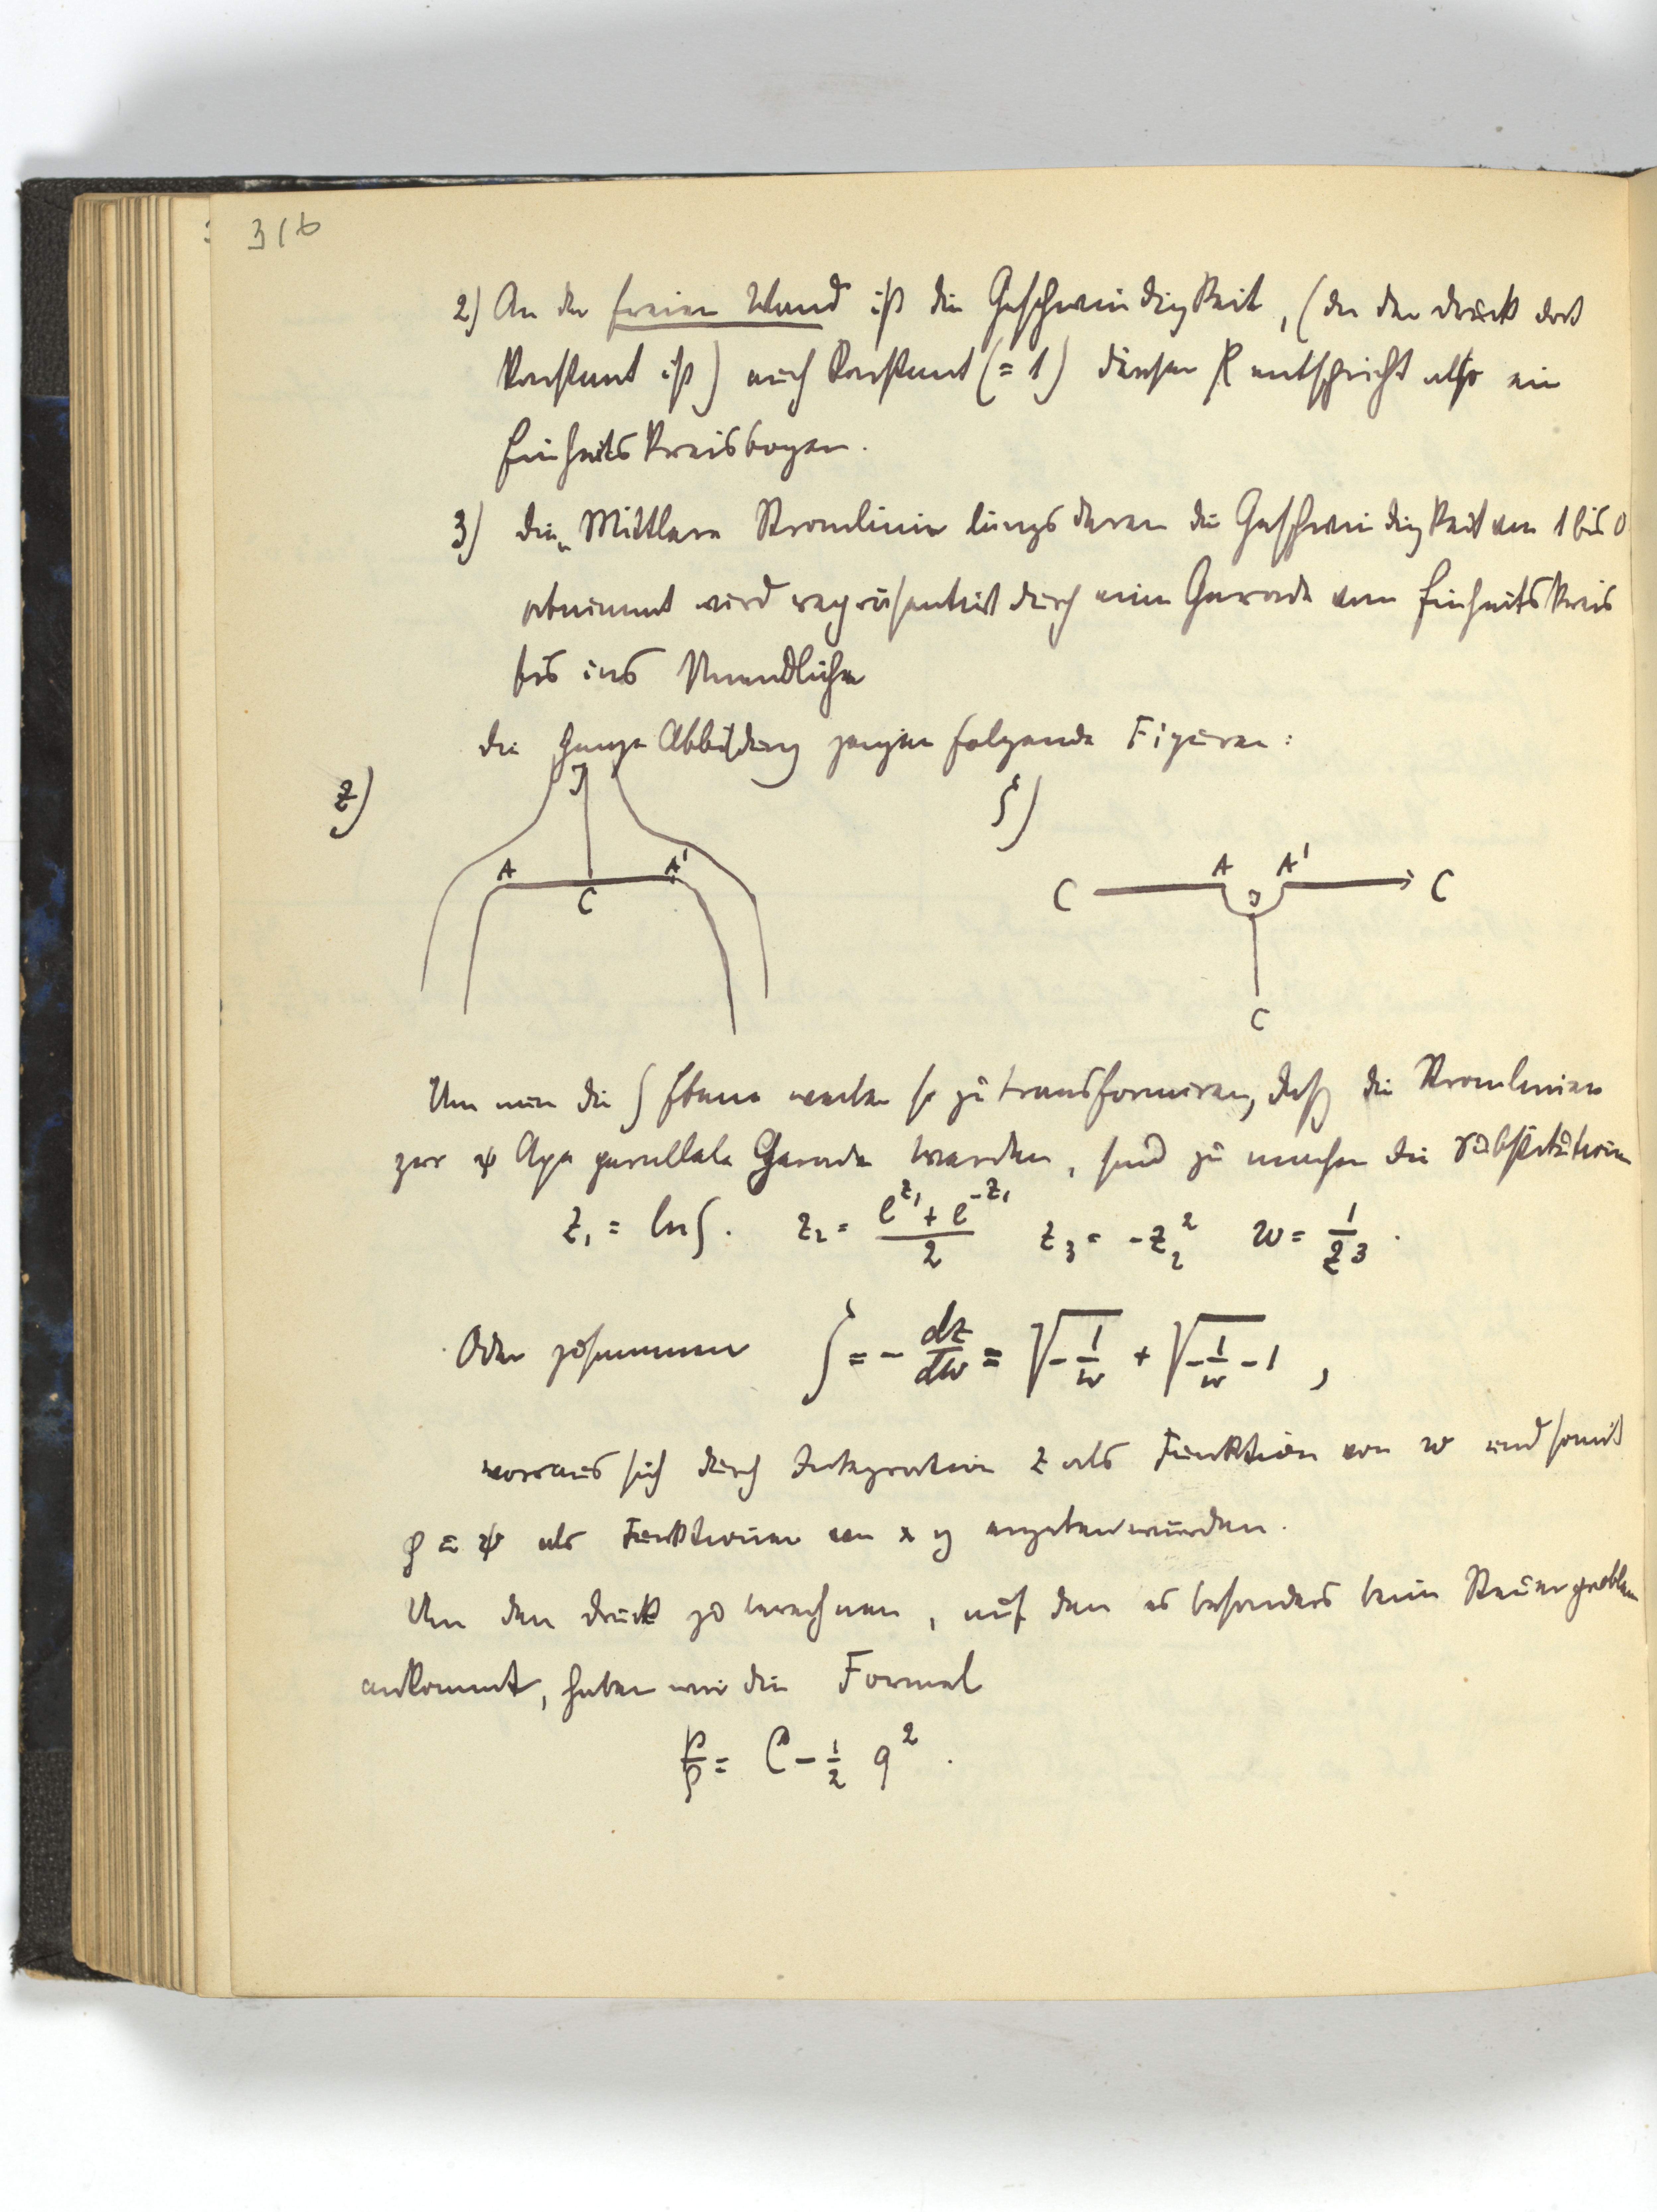 316
2) An der freien Wand ist die Geschwindigkeit, (da der Druck dort
konstant ist) auch konstant (= 1) dieser entspricht also ein
Einheitskreisbogen.
3) die „Mittlere Stromlinie längs deren die Geschwindigkeit von 1 bis 0
abnimmt wird repräsentiert durch eine Gerade vom Einheitskreis
bis ins Unendliche
die ganze Abbildung zeigen folgende Figuren:
z) J A C A'
ζ) C A J A' C
C
Um nun die ζ Ebene weiter so zu transformiren, daß die Stromlinien
zur ψ Axe parallele Gerade werden, sind zu machen die Substitution
z₁ = ln ζ. z₂ = (e^{z₁} + e^{-z₁})/2 z₃ = -z₂² w = 1/z₃.
Oder zusammen ζ = - dz/dw = √(-1/w) + √(-1/w - 1),
woraus sich durch Integration z als Funktion von w und somit
φ u ψ als Funktionen von x y ergeben würden.
Um den Druck zu berechnen, auf den es besonders beim Steuerproblem
ankommt, haben wir die Formel
p/ρ = C - 1/2 q².